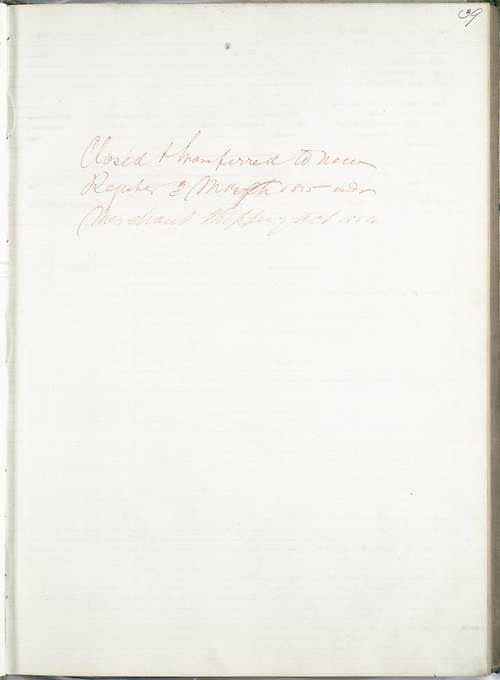 39
Closed & transferred to new
Register 2 March under
Merchant Shipping Act